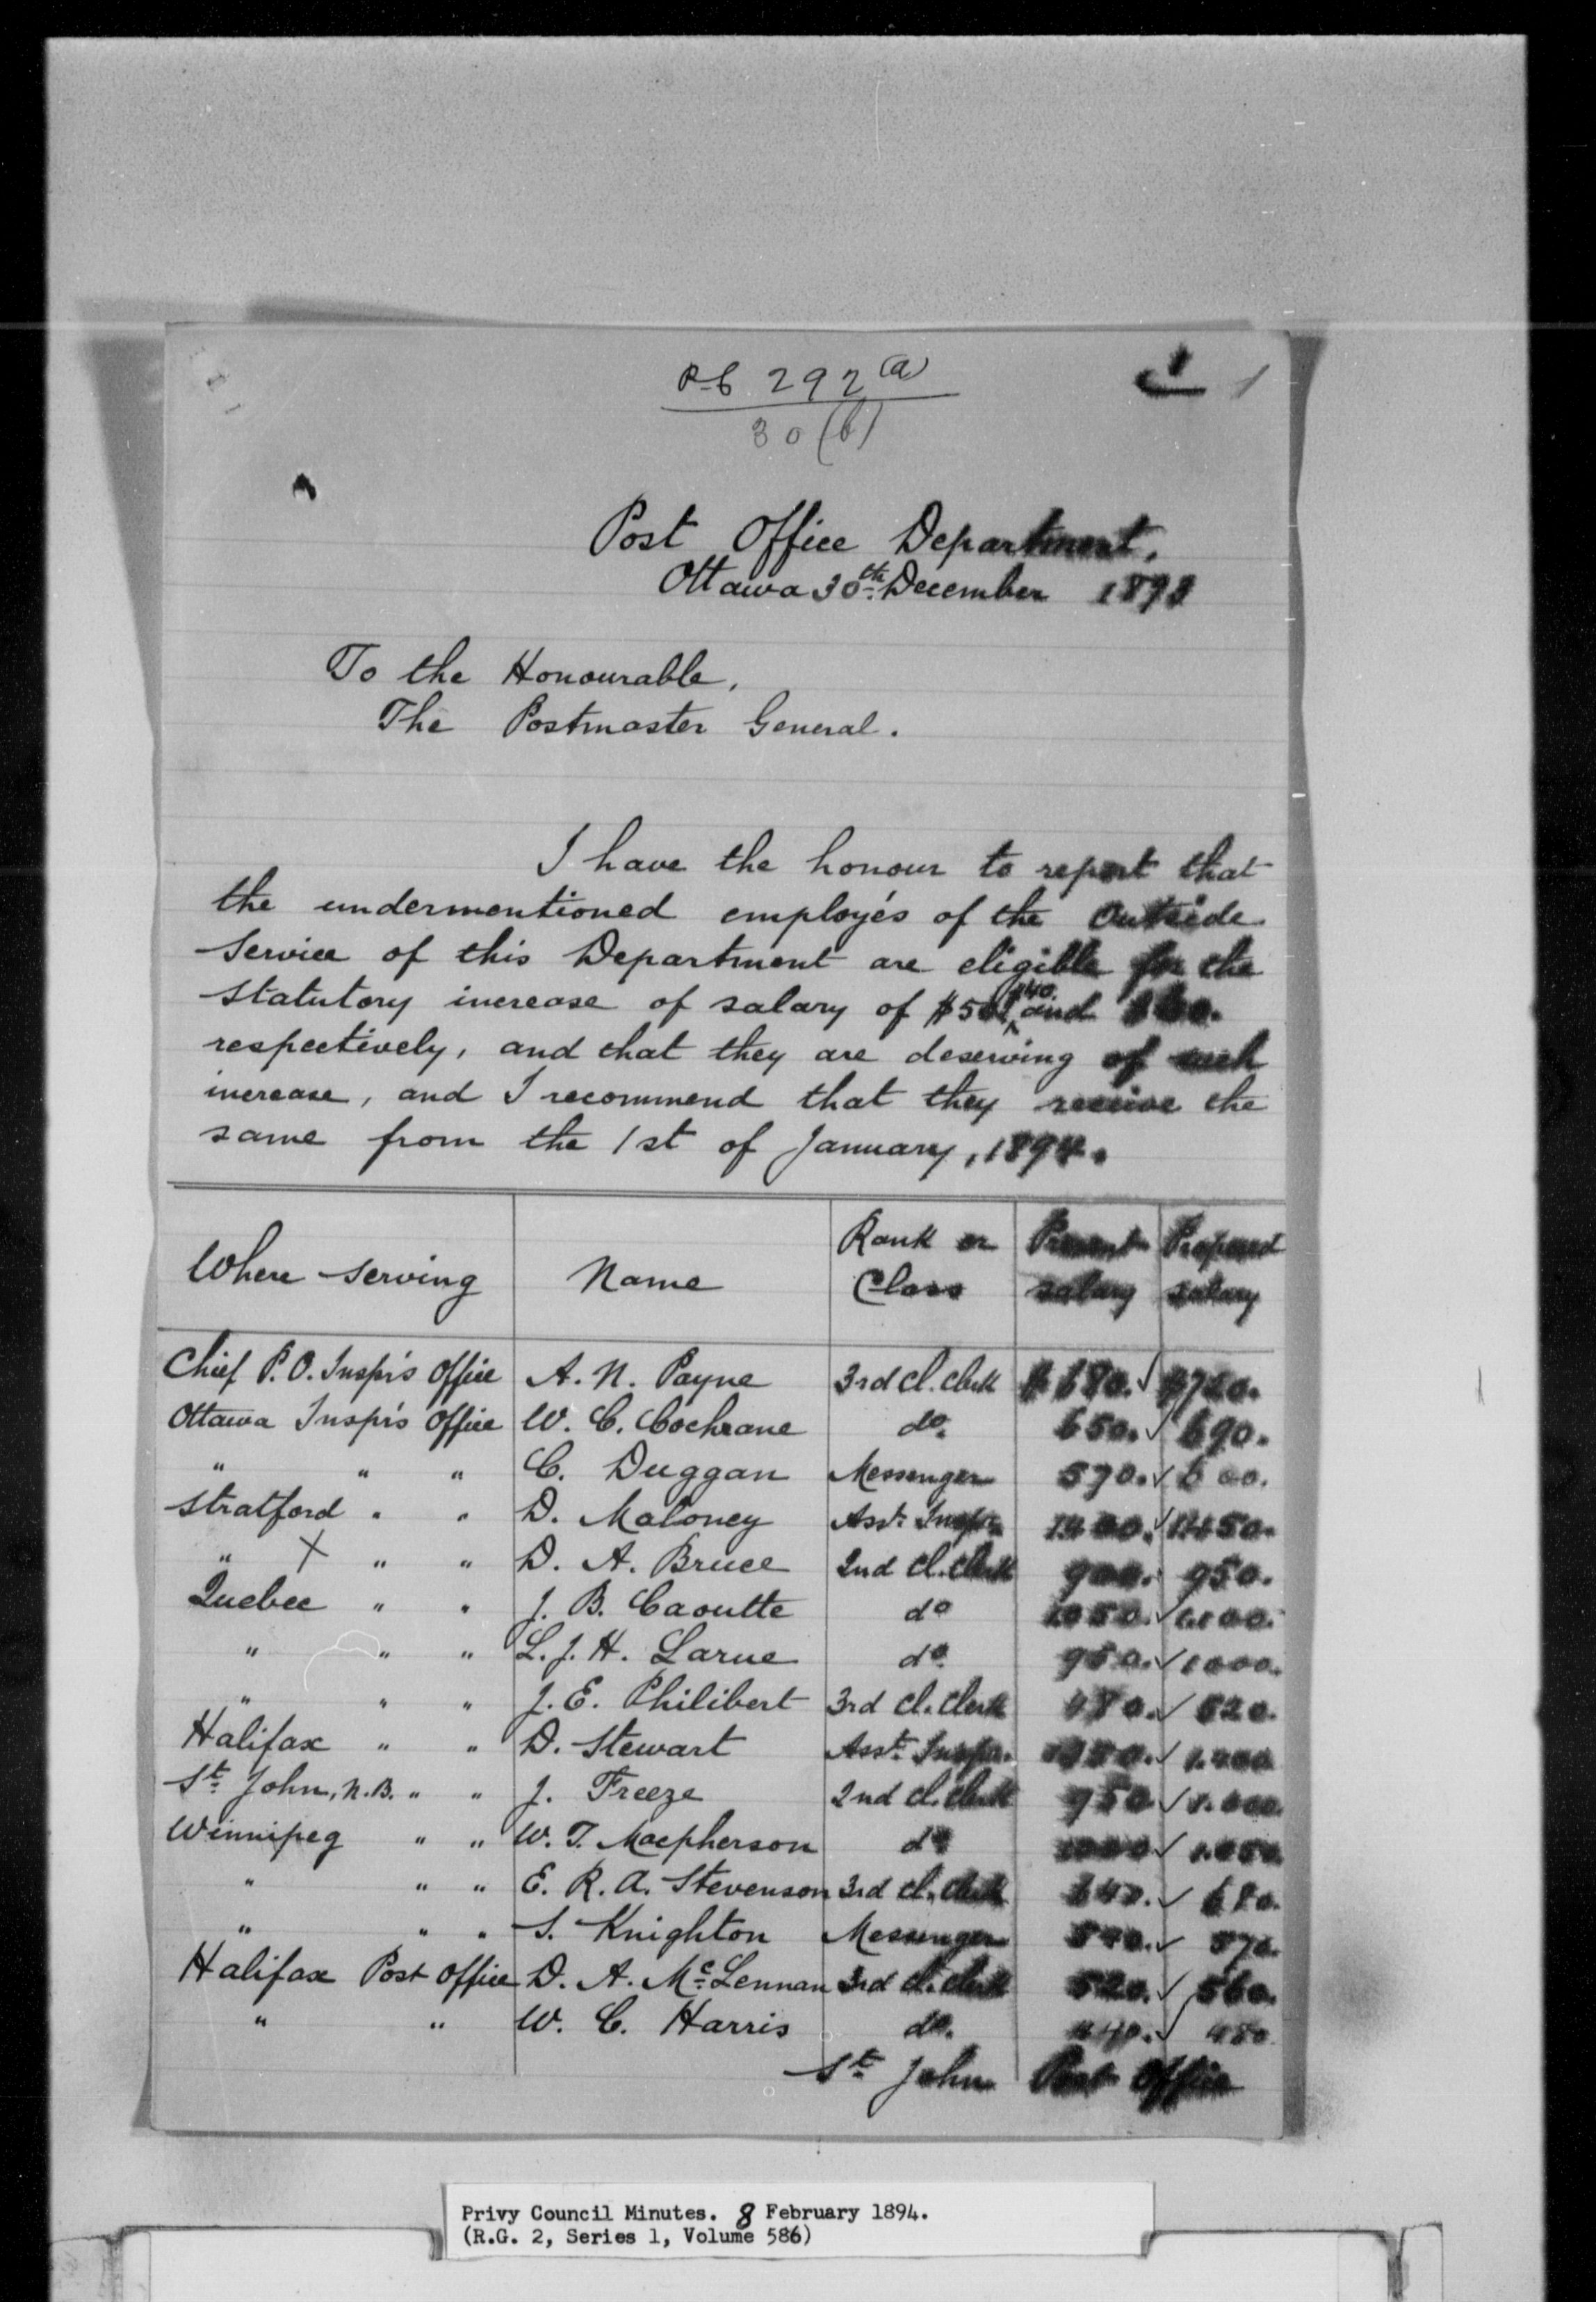 P.C. 292 (a)
30 (b)
1
Post Office Department,
Ottawa 30th December 1893
To the Honourable,
The Postmaster General.
I have the honour to report that
the undermentioned employés of the Outside
Service of this Department are eligible for the
statutory increase of salary of $50, $40 and $30.
respectively, and that they are deserving of such
increase, and I recommend that they receive the
same from the 1st of January, 1894.
Where serving Name Rank or Class Present salary Proposed salary
Chief P.O. Inspr's Office A. N. Payne 3rd cl. clerk $680. ✓ $720.
Ottawa Inspr's Office W. C. Cochrane do. 650. ✓ 690.
" " " C. Duggan Messenger 570. ✓ 600.
Stratford " " D. Maloney Asst. Inspr. 1400. ✓ 1450.
" X " " D. A. Bruce 2nd cl. clerk 900. 950.
Quebec " " J. B. Caoutte do 1050. ✓ 1100.
" " " L. J. H. Larue do. 950. ✓ 1000.
" " " J. E. Philibert 3rd cl. clerk 480. ✓ 520.
Halifax " " D. Stewart Asst. Inspr. 1350. ✓ 1.400
St. John, N.B. " " J. Freeze 2nd cl. clerk 950 ✓ 1.000.
Winnipeg " " W. T. Macpherson do 1000 ✓ 1.050.
" " " E. R. A. Stevenson 3rd cl. clerk 640. ✓ 680.
" " " S. Knighton Messenger 540. ✓ 570.
Halifax Post Office D. A. McLennan 3rd cl. clerk 520. ✓ 560.
" " W. C. Harris do. 440. ✓ 480
St. John Post Office
Privy Council Minutes. 8 February 1894.
(R.G. 2, Series 1, Volume 586)